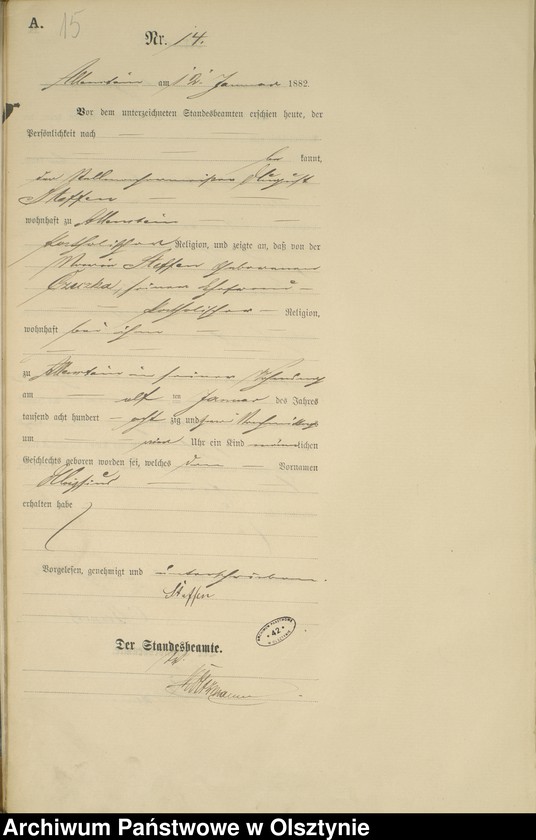 A. 15
Nr. 14.
Allenstein am 12 Januar 1882.
Vor dem unterzeichneten Standesbeamten erschien heute, der
Persönlichkeit nach
be kannt,
der August
Steffen
wohnhaft zu Allenstein
katholischer Religion, und zeigte an, daß von der
Maria Steffen geborenen
Czeczka, seiner Ehefrau
katholischer Religion,
wohnhaft bei ihm
zu Allenstein in seiner Wohnung
am elf ten Januar des Jahres
tausend acht hundert acht zig und zwei Nachmittags
um vier Uhr ein Kind männlichen
Geschlechts geboren worden sei, welches den Vornamen
Aloysius
erhalten habe
Vorgelesen, genehmigt und unterschrieben.
Steffen
Der Standesbeamte.
42
Archiwum Państwowe w Olsztynie